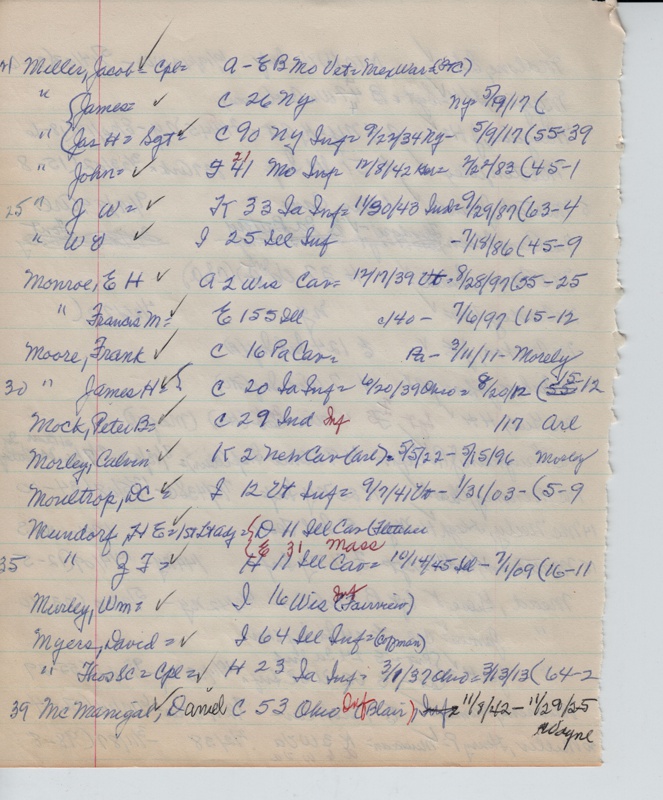 21 Miller, Jacob = Cpl = ✓ A - E B Mo Vet = Mex War = (FC)
" {James = ✓ C 26 Ny Ny 5/9/17 (
" {Jas H = Sgt = ✓ C 90 Ny Inf = 9/22/34 Ny - 5/9/17 (55-39
" John = ✓ F 41 21 Mo Inf 12/8/42 - 2/27/83 (45-1
25 " J W = ✓ K 33 Ia Inf = 11/30/43 Ind = 9/29/87 (63-4
" W ✓ I 25 Ill Inf - 7/18/86 (45-9
Monroe, E H ✓ A 2 Wis Cav = 12/17/39 Vt = 8/28/97 (35-25
" Francis M = ✓ E 155 Ill c/40 - 7/6/97 (15-12
Moore, Frank ✓ C 16 Pa Cav = Pa - 3/11/11 - Morely
30 " James H = ✓ C 20 Ia Inf = 6/20/39 Ohio = 8/20/12 (55 15-12
Mock, Peter B = ✓ C 29 Ind Inf /17 Arl
Morley, Calvin ✓ K 2 Neb Cav (Arl) = 5/5/22 - 5/15/96 Morley
Moultrop, D C = ✓ I 12 Vt Inf = 9/7/41 Vt - 1/31/03 - (5-9
Mundorf, H E = 1st Lt Adj = {D 11 Ill Cav
{E 31 Mass
35 " Z F = ✓ H 11 Ill Cav = 10/14/45 Ill - 7/1/09 (16-11
Murley, Wm = ✓ I 16 Wis Inf (Fairview)
Myers, David = ✓ I 64 Ill Inf = (Cozman)
" Thos SC = Cpl = ✓ H 23 Ia Inf = 3/1/37 Ohio = 3/13/13 (64-2
39 McManigal, ✓ Daniel C 53 Ohio Inf (Blair) Inf = 11/8/42 - 11/29/25
Wayne